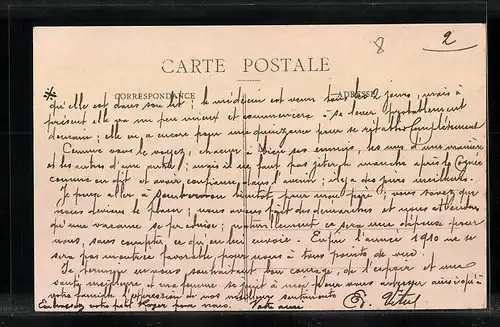 8
2
CARTE POSTALE
CORRESPONDANCE
ADRESSE
qu'elle est dans son lit ; le médecin est venu tous les 2 jours, mais à
présent elle va un peu mieux et commencera à se lever probablement
demain ; elle en a encore pour une quinzaine pour se rétablir complètement
Comme vous le voyez, chacun a bien ses ennuis, les uns d'une manière
et les autres d'une autre ; mais il ne faut pas jeter le manche après la cognée
comme on dit et avoir confiance dans l'avenir ; il y a des jours meilleurs.
Je pense aller à bientôt pour mon père ; vous savez que
nous devions le placer ; nous avons fait des démarches et nous attendons
qu'une vacance se produise ; naturellement ce sera une dépense pour
nous, sans compter ce qu'on lui envoie. Enfin l'année 1910 ne se
sera pas montrée favorable pour nous à tous points de vue.
Je termine en vous souhaitant bon courage, de l'espoir et une
santé meilleure et ma femme se joint à moi pour vous adresser ainsi qu'à
votre famille l'expression de nos meilleurs sentiments
Embrassez votre petit Roger pour nous. Votre ami